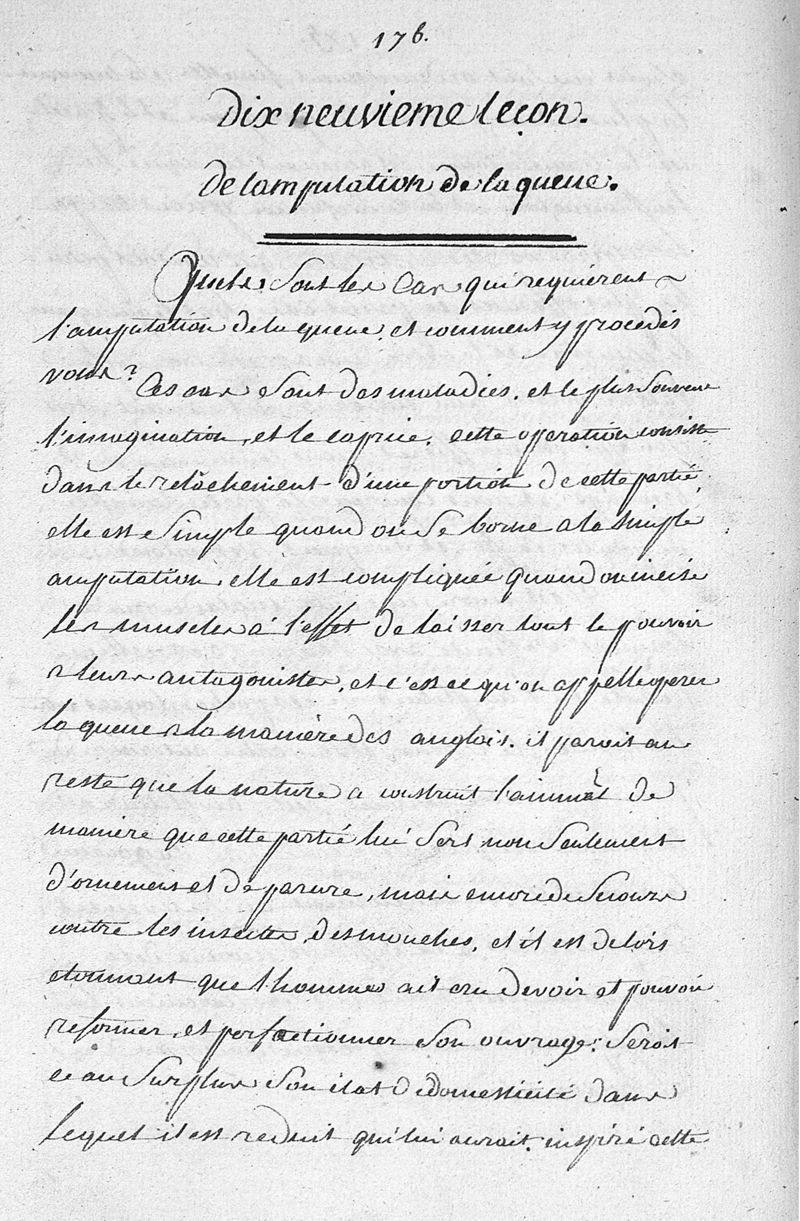 176.
Dix neuvieme leçon.
De lamputation de la queue.
Quels sont les Cas qui requièrent
l'amputation de la queue, et comment y procedés
vous?
Ces cas sont des maladies, et le plus souvent
l'imagination, et le caprice, cette operation consiste
dans le retachement d'une portion de cette partie
elle est simple quand on se borne a la simple
amputation, elle est compliquée quand on incise
les muscles à l'effet de laisser tout le pouvoir
a leurs antagonistes, et c'est ce qu'on appelle operer
la queue a la manière des anglois. il paroit au
reste que la nature a construit l'animal de
manière que cette partie lui sert non seulement
d'ornement et de parure, mais encore de secours
contre les insectes, des mouches, et il est delors
etonnant que l'homme ait cru devoir et pouvoir
reformer, et perfectionner son ouvrage: seroit
ce au surplus son état de domesticité dans
lequel il est reduit qui lui auroit inspiré cette